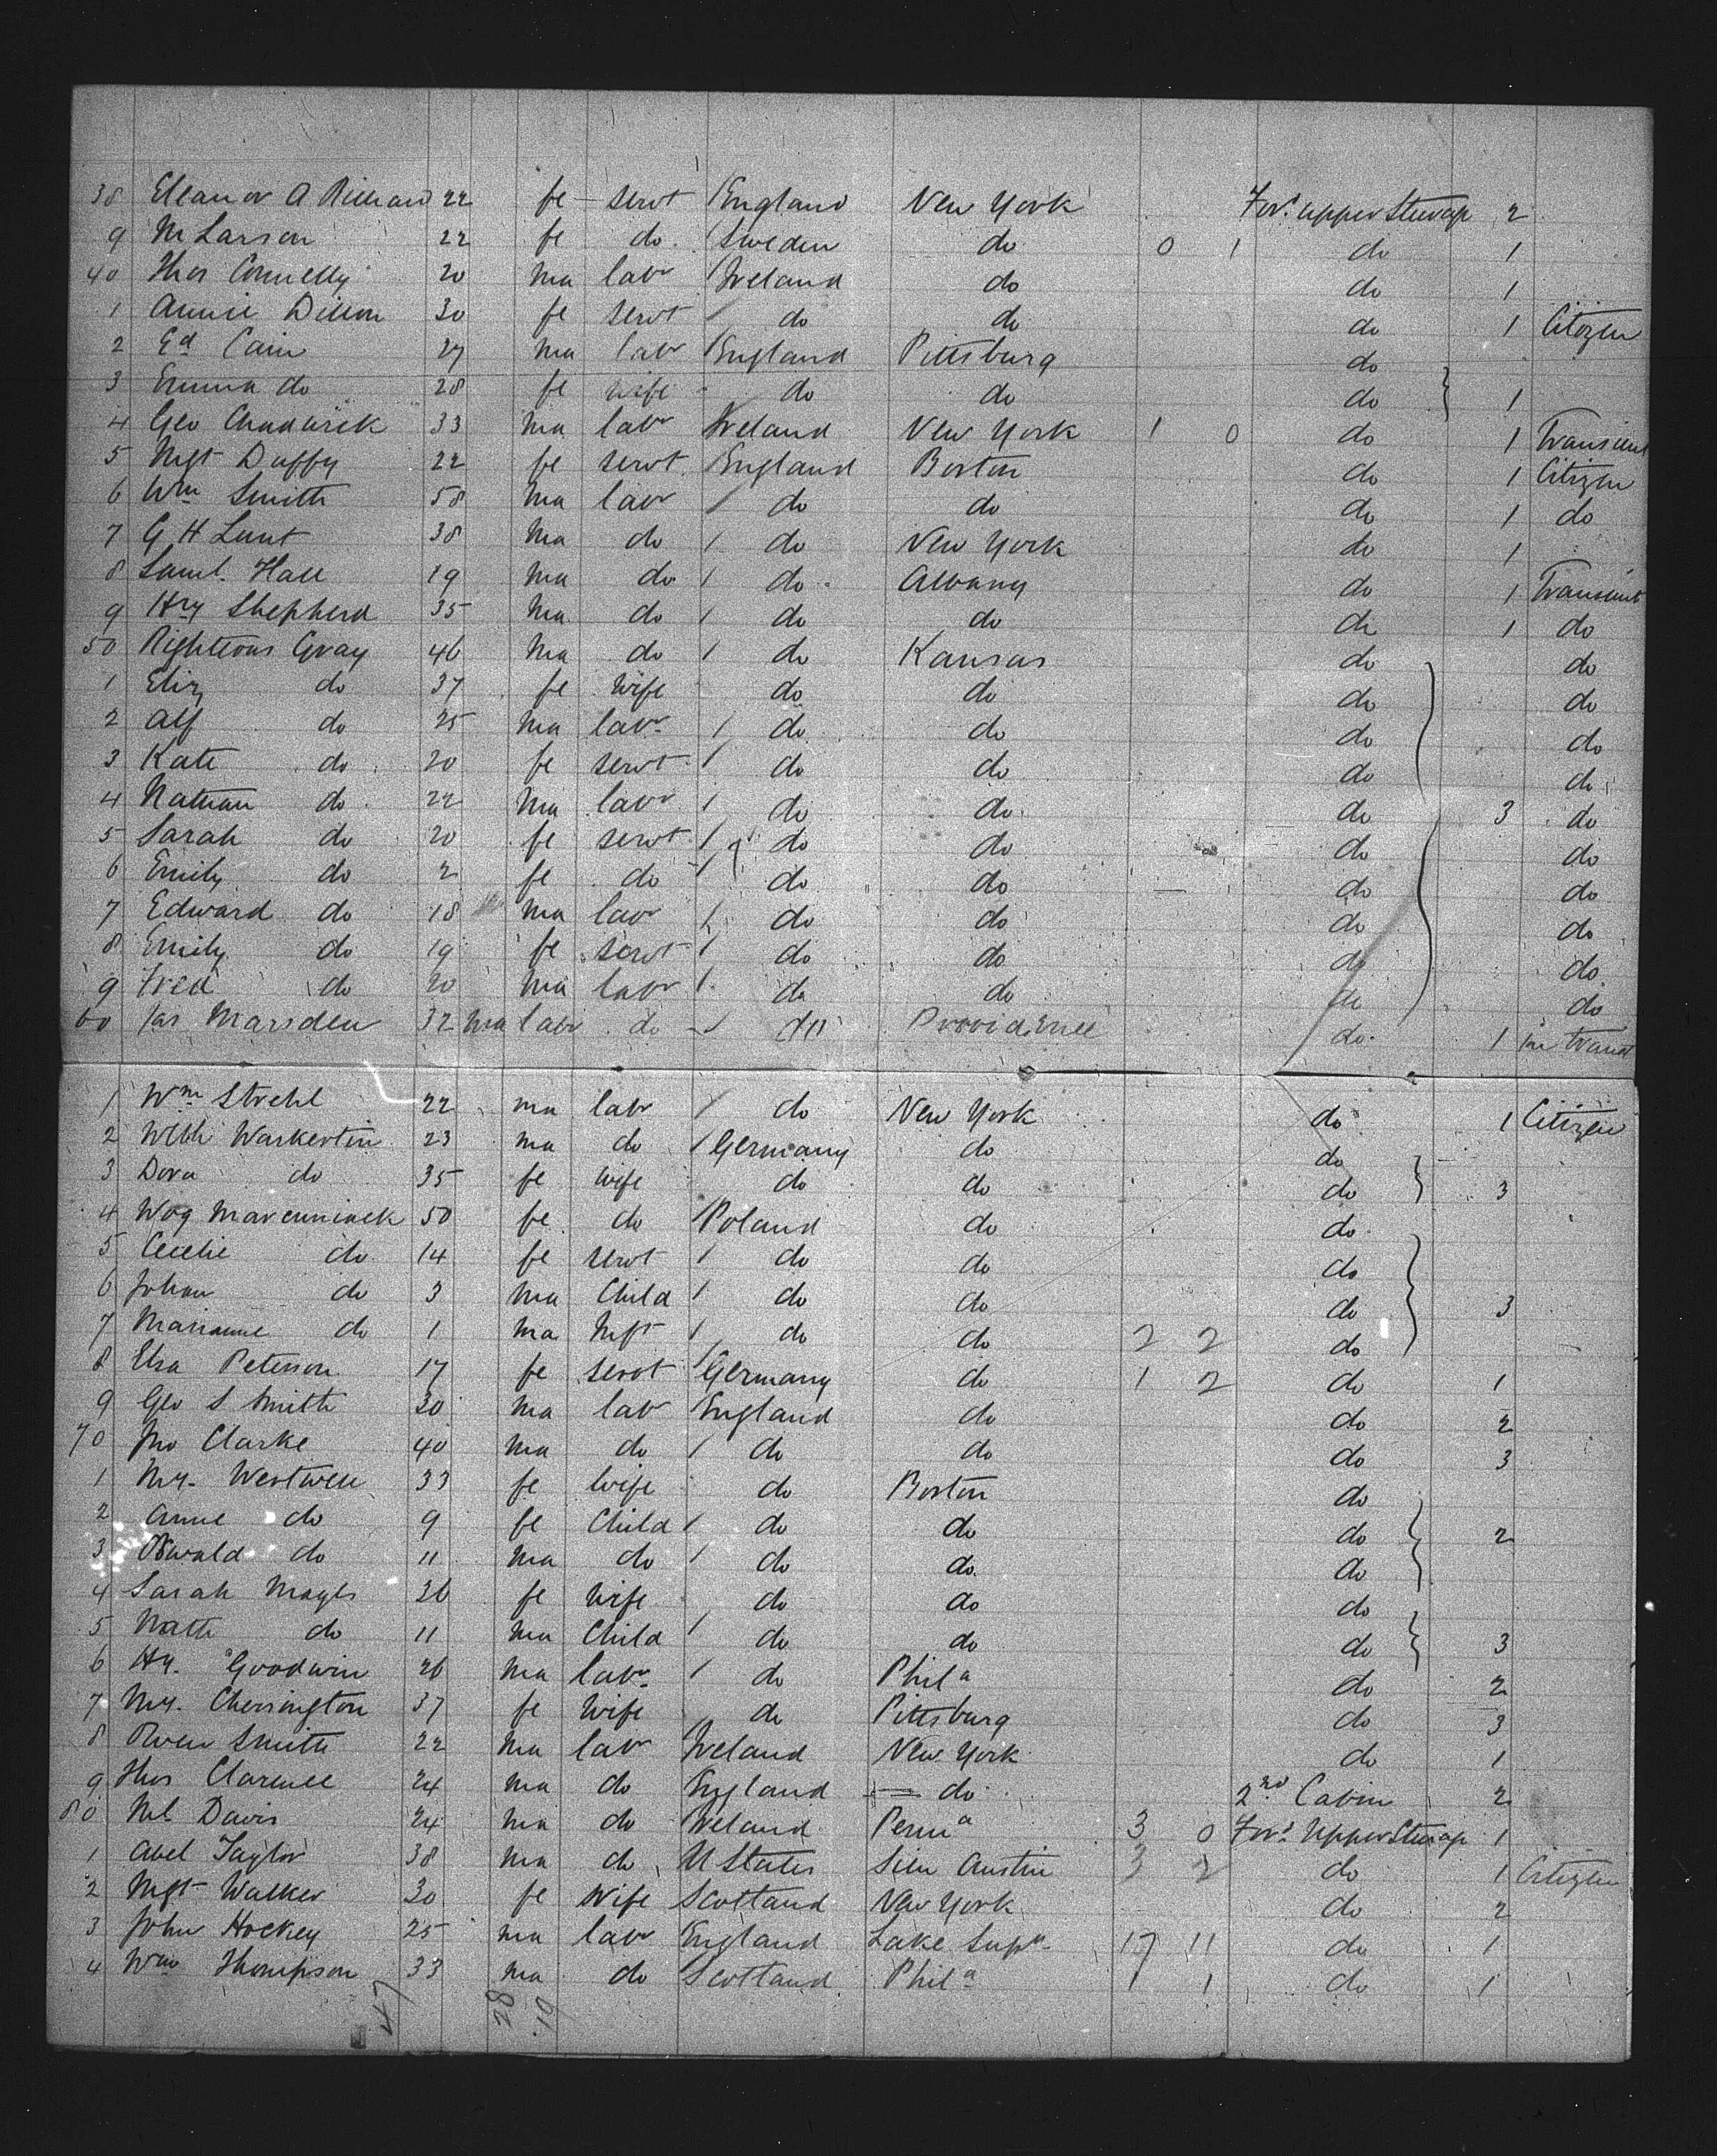 38 Eleanor A 22 fe servt England New York For. upper Steerage 2
9 M Larson 22 fe do Sweden do 0 1 do 1
40 Thos Connelly 20 ma labr Ireland do do 1
1 Annie Dillon 30 fe servt do do do 1 Citizen
2 Ed Cain 27 ma labr England Pittsburg do
3 Emma do 28 fe wife do do do 1
4 Geo Chadwick 33 ma labr Ireland New York 1 0 do 1 Transient
5 Mgt Duffy 22 fe servt England Boston do 1 Citizen
6 Wm Smith 58 ma labr do do do 1 do
7 G H Lunt 38 ma do do New York do 1
8 Saml. Hall 19 ma do do Albany do 1 Transient
9 Hry Shepherd 35 ma do do do do 1 do
50 Righteous Gray 46 ma do do Kansas do do
1 Eliz do 37 fe wife do do do do
2 Alf do 25 ma labr do do do do
3 Kate do 20 fe servt do do do do
4 Nathan do 22 ma labr do do do 3 do
5 Sarah do 20 fe servt do do do do
6 Emily do 2 fe do do do do do
7 Edward do 18 ma labr do do do do
8 Emily do 19 fe servt do do do do
9 Fred do 20 ma labr do do do do
60 Jas Marsden 32 ma labr do do Providence do 1 in transt
1 Wm Strehl 22 ma labr do New York do 1 Citizen
2 Wlth Warkertin 23 ma do Germany do do
3 Dora do 35 fe wife do do do 3
4 Wog 50 fe do Poland do do
5 Cecelie do 14 fe servt do do do
6 Johan do 3 ma Child do do do 3
7 Marianne do 1 ma Inft do do 2 2 do
8 Elsa Peterson 17 fe servt Germany do 1 2 do 1
9 Geo S Smith 30 ma labr England do do 2
70 Jno Clarke 40 ma do do do do 3
1 My. Westwell 33 fe wife do Boston do
2 Anne do 9 fe Child do do do 2
3 Oswald do 11 ma do do do do
4 Sarah 36 fe wife do do do
5 Nath do 11 ma Child do do do 3
6 Hy. Goodwin 26 ma labr do Phila do 2
7 My. Cherrington 37 fe wife do Pittsburg do 3
8 Owen Smith 22 ma labr Ireland New York do 1
9 Thos Clarence 24 ma do England do 2nd Cabin 2
80 Ml Davis 24 ma do Ireland Penna 3 0 For. Upper Steerage 1
1 Abel Taylor 38 ma do U States Austin 3 2 do 1 Citizen
2 Mgt Walker 30 fe wife Scotland New York do 2
3 John Hockey 25 ma labr England Lake Supr 17 11 do 1
4 Wm Thompson 33 ma do Scotland Phila 1 1 do 1
47 28 19